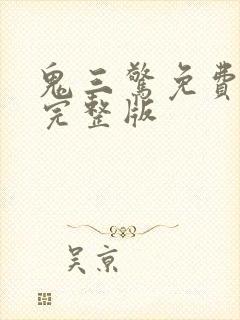 鬼三驚免費
完整版
吴京